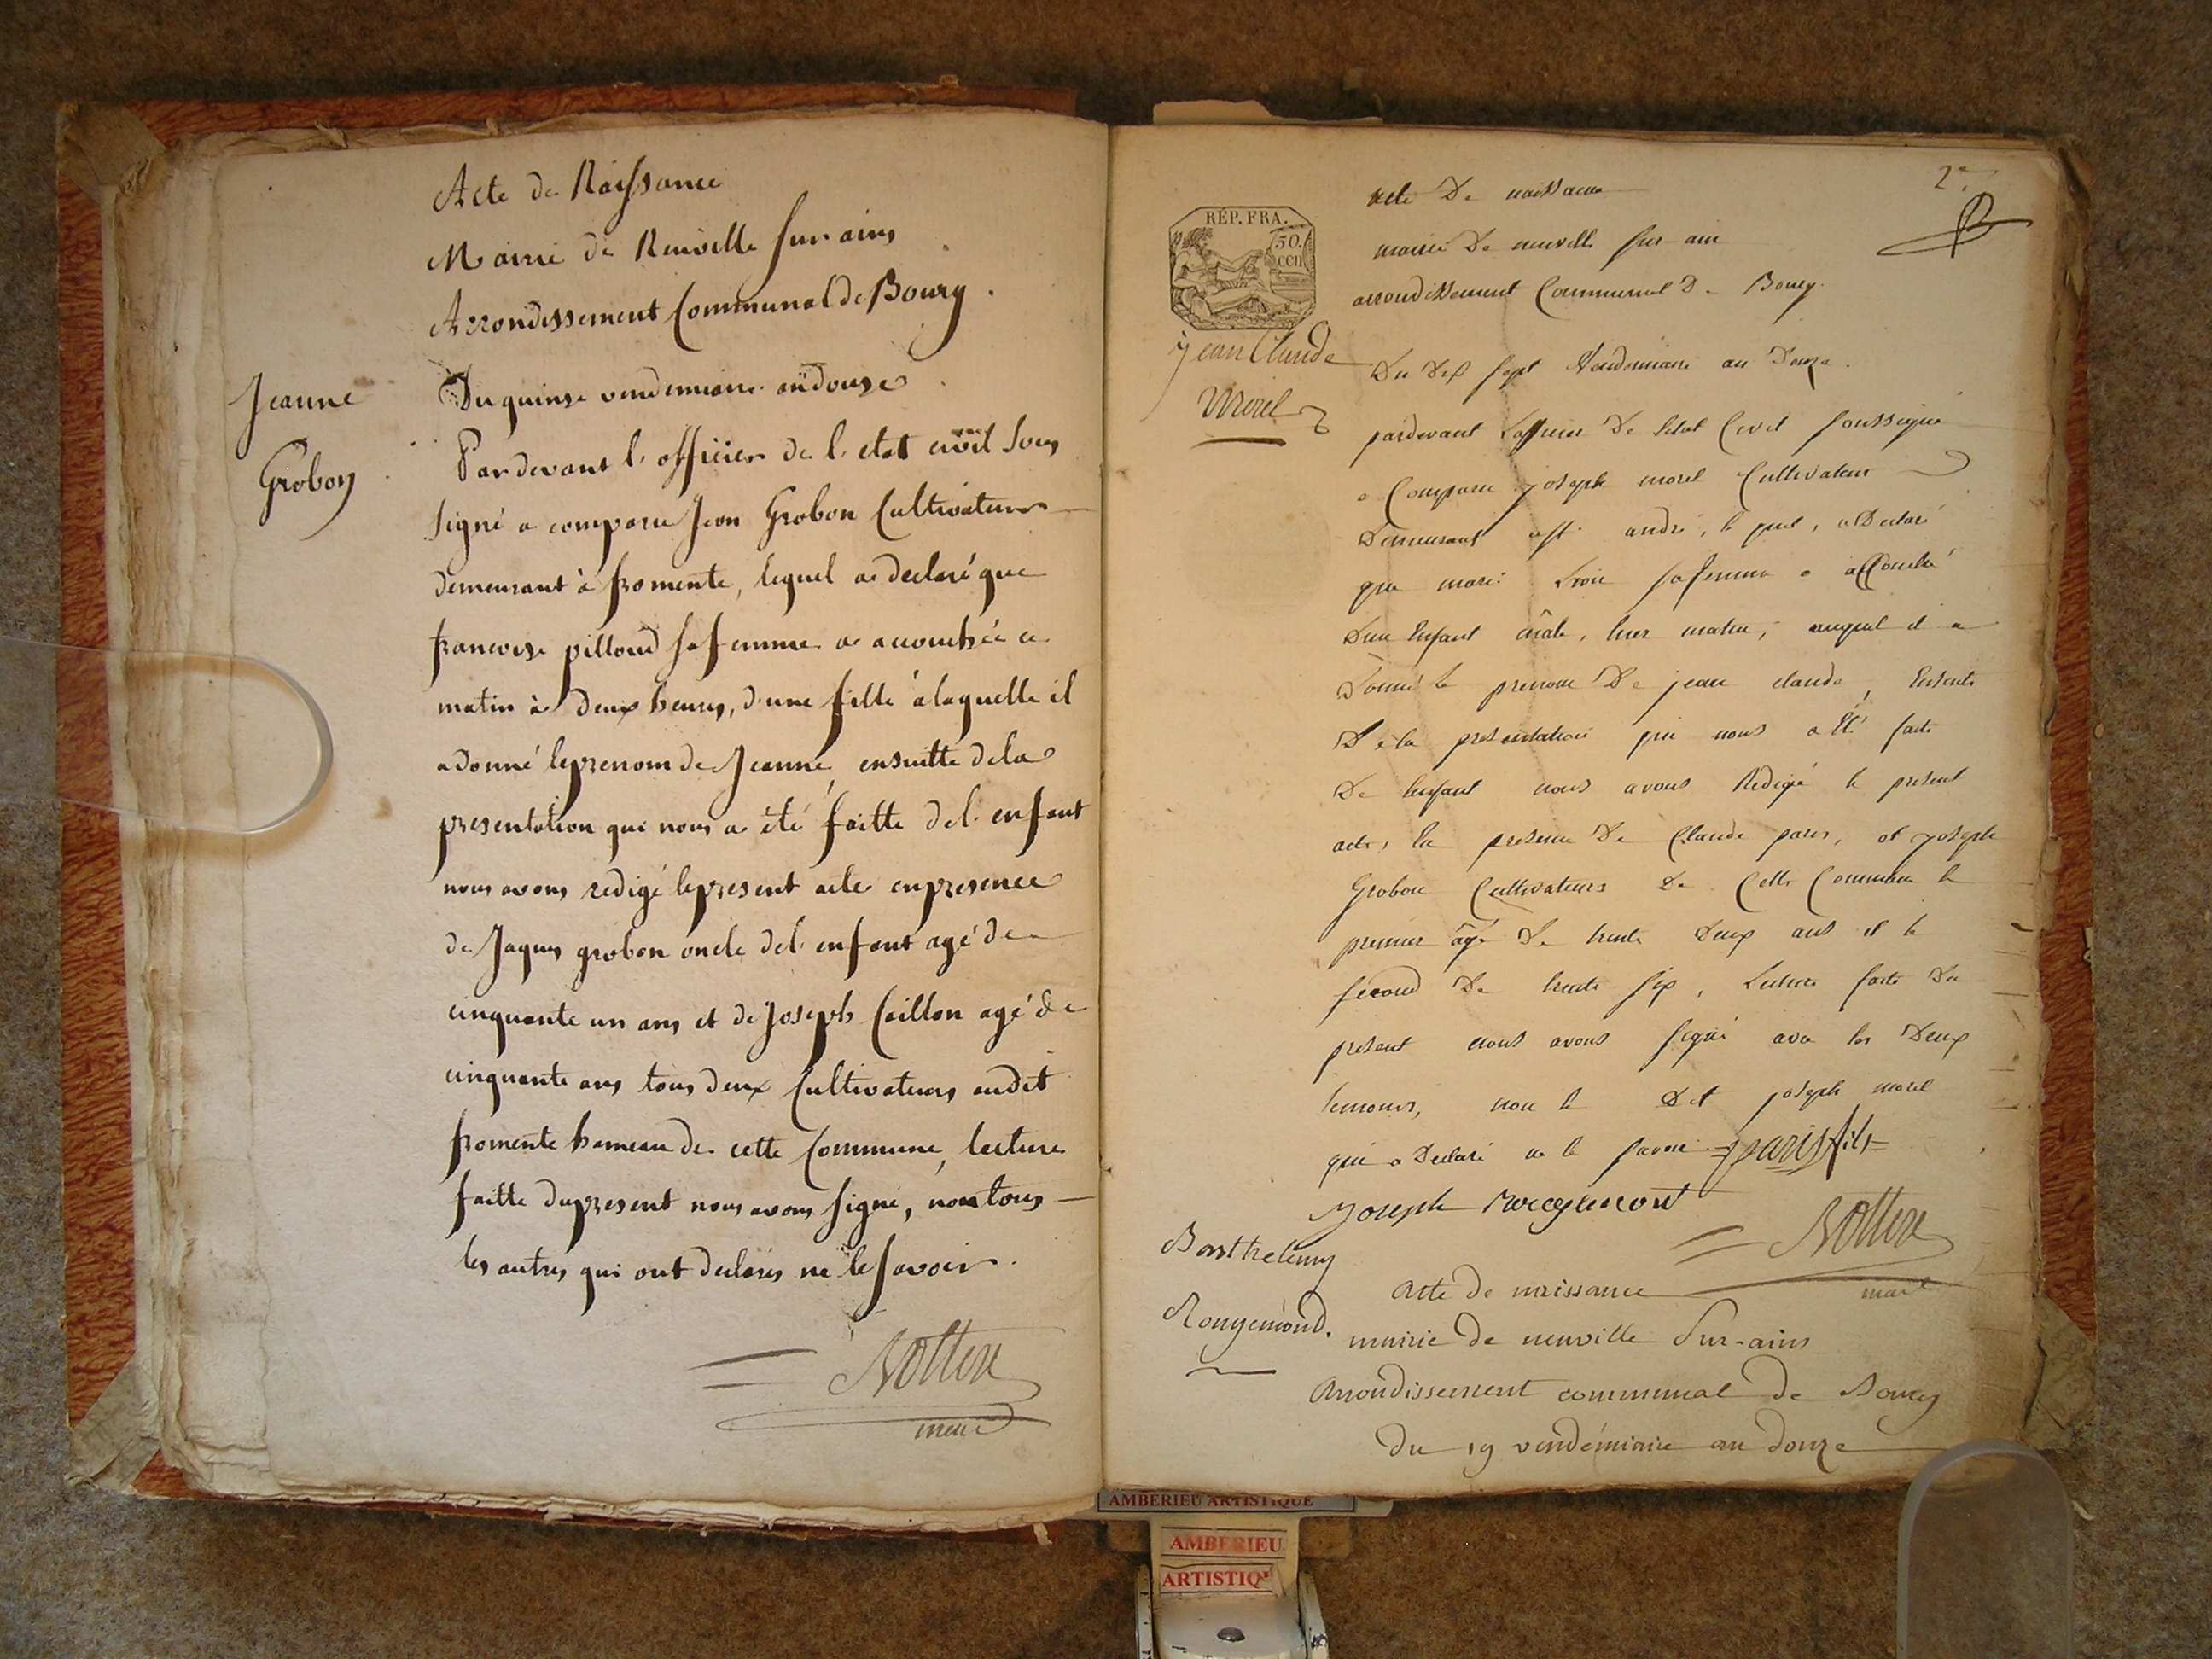 Acte de Naissance
Mairie de Neuville sur ains
Arrondissement Communal de Bourg.
Jeanne
Grobon
Du quinse vendemiaire an douse
Par devant l'officier de l'etat civil sous
signé a comparu Jean Grobon Cultivateur
demeurant à fromente, lequel a declaré que
francoise pilloud sa femme a accouchée ce
matin à deux heures, d'une fille à laquelle il
a donné le prenom de Jeanne, ensuitte de la
presentation qui nous a été faitte de l'enfant
nous avons redigé le present acte en presence
de Jaques grobon oncle de l'enfant agé de
cinquante un ans et de Joseph Caillon agé de
cinquante ans tous deux Cultivateurs audit
fromente hameau de cette Commune, lecture
faitte du present nous avons signé, non tous
les autres qui ont declarés ne le savoir.
maire
2e
acte De naissance
mairie De neuville sur ain
arrondissement Communal De Bourg.
RÉP. FRA.
50.
CEN
jean Claude
Morel
Du Dix sept Vendemiaire an Douze.
pardevant L'officier De l'etat Civil soussigné
a Comparu joseph morel Cultivateur
Demeurant a st andré, le quel, a Declaré
que marie sa femme a accouché
D'un Enfant mâle, hier matin, auquel il a
Donné le prenom De jean claude, Ensuite
De la presentation qui nous a Eté faite
De lenfant nous avons Redigé le present
acte, En presence De Claude paris, et joseph
Cultivateurs De Cette Commune le
premier âgé De trente Deux ans et le
second De trente six, Lecture faite Du
present nous avons signé avec les Deux
temoins, non le Dit joseph morel
qui a Declaré ne le savoir = paris fils =
Joseph
maire
Barthelemy
Rougemond.
Acte de naissance
mairie de neuville Sur-ains
Arrondissement communal de Bourg
du 19 vendémiaire an douze
AMBERIEU ARTISTIQUE
AMBERIEU
ARTISTIQ